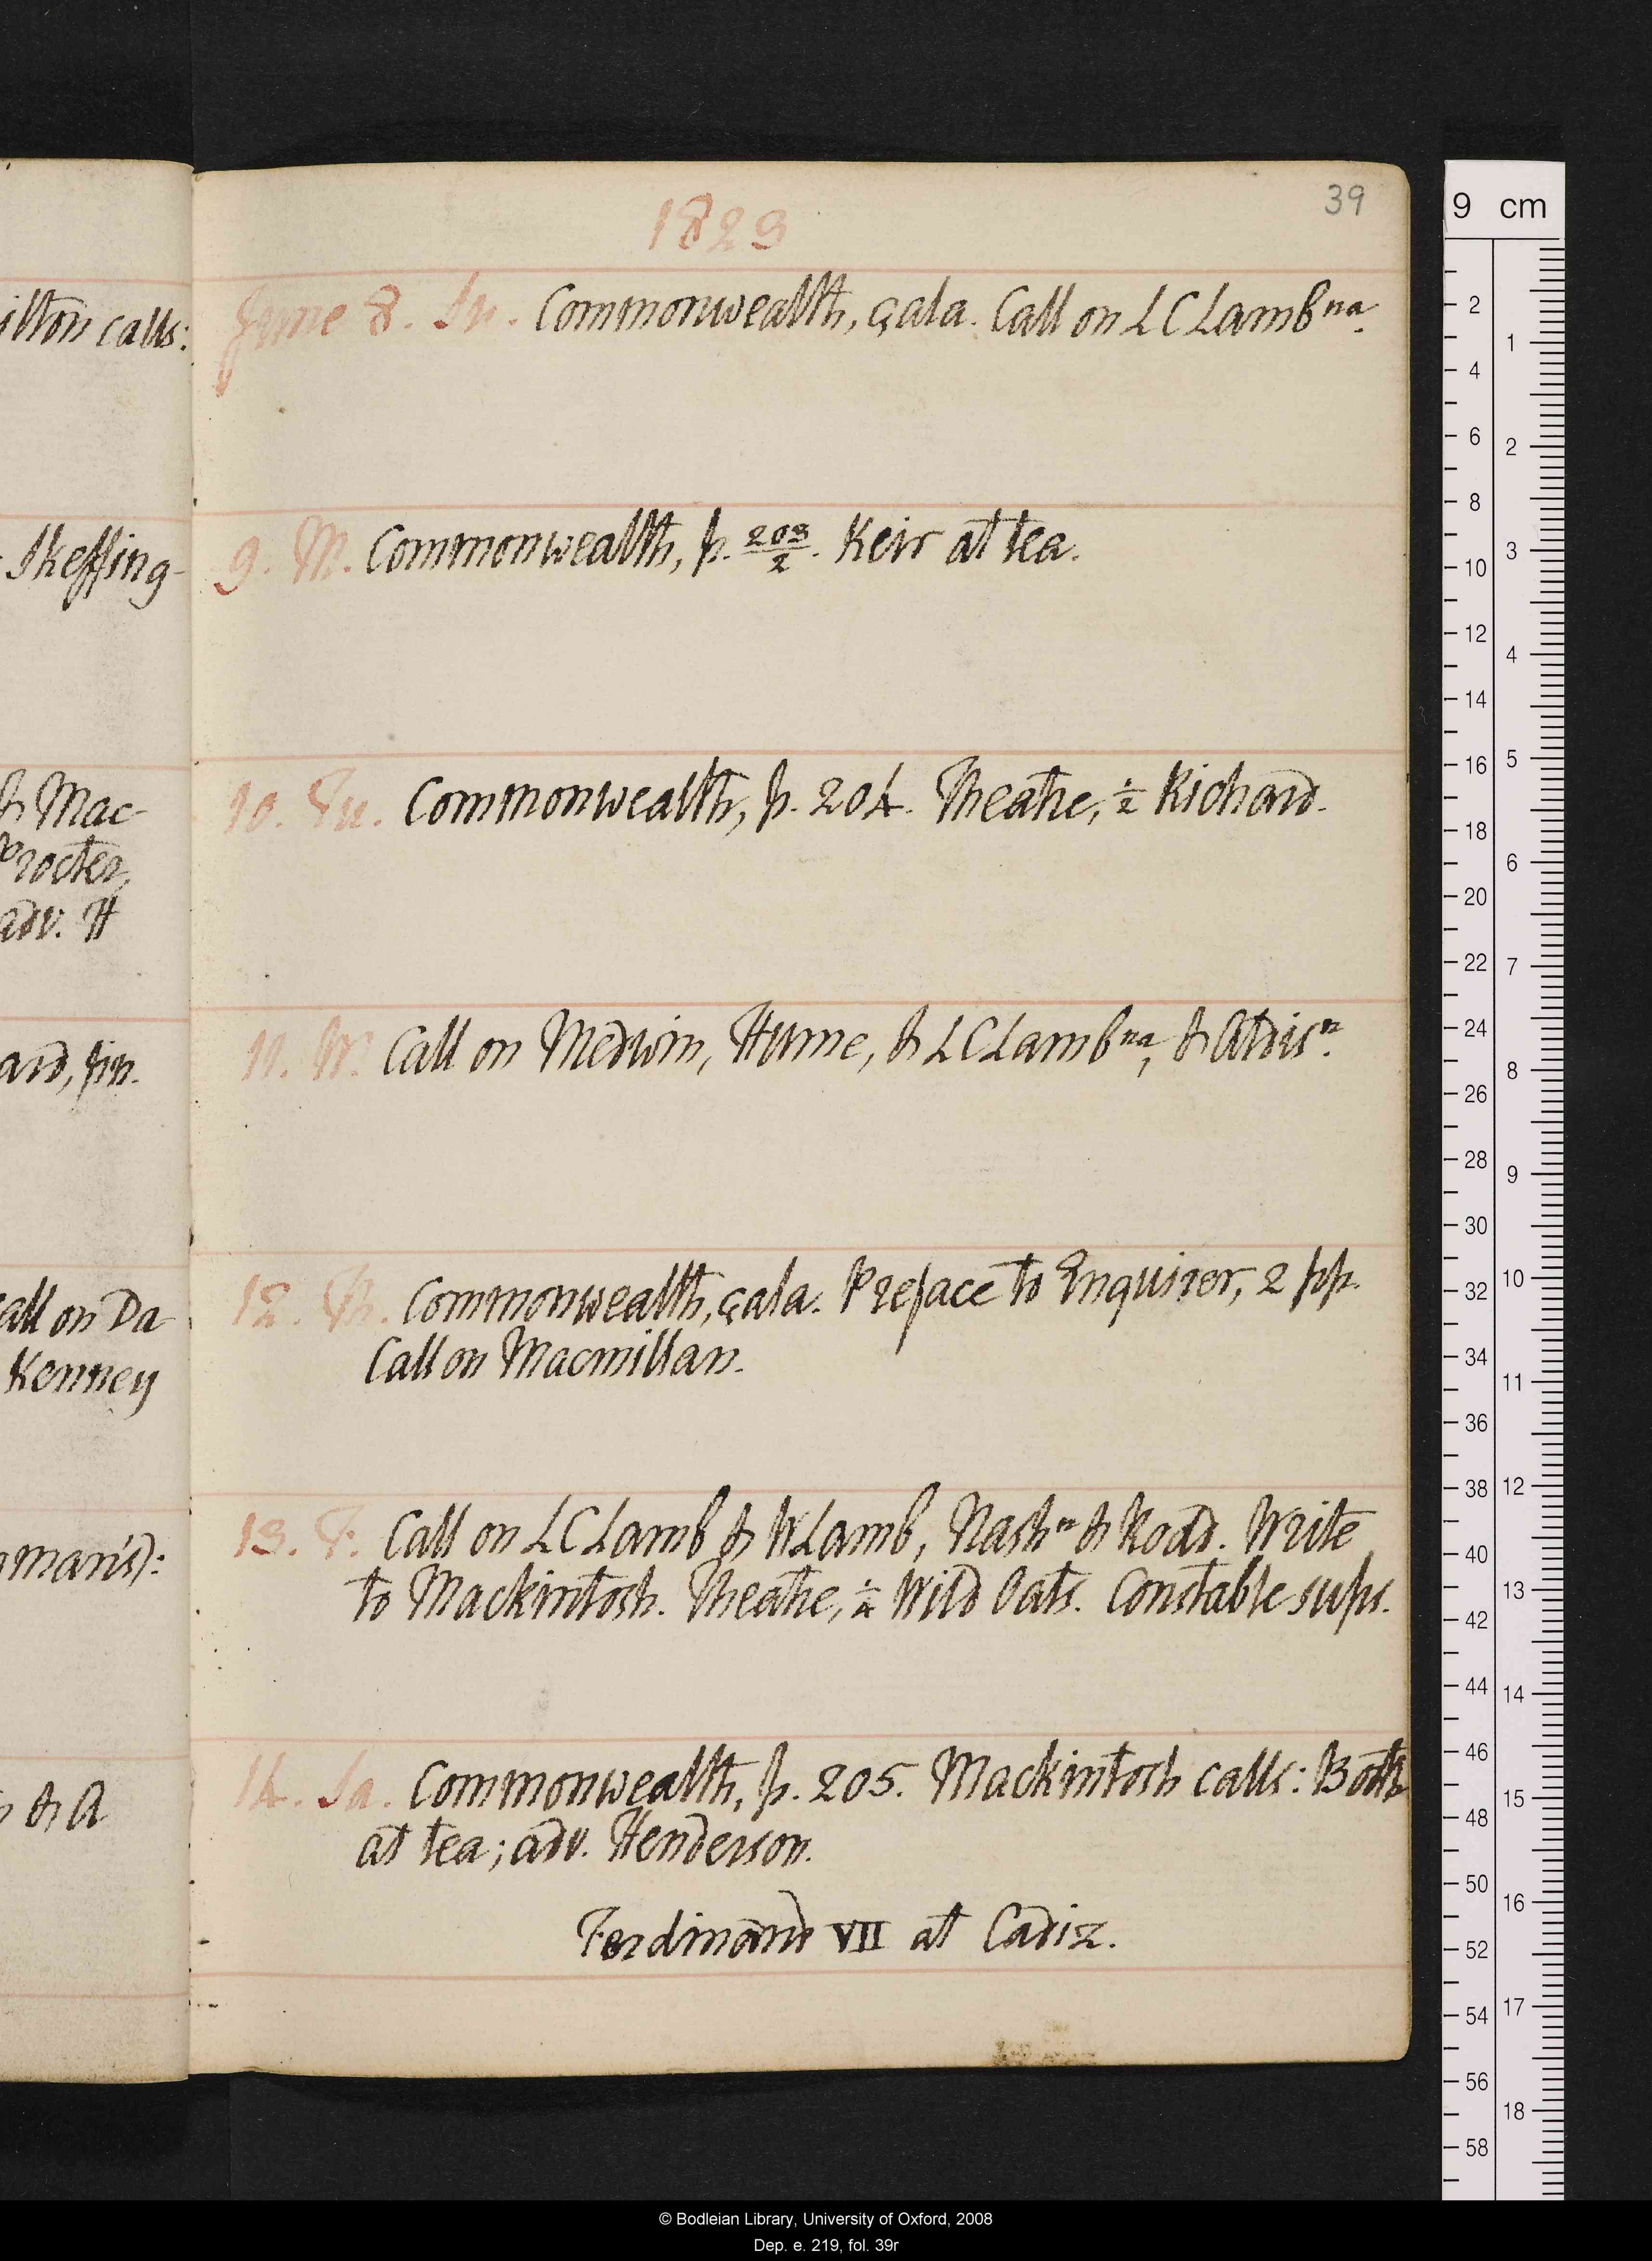 39
1823
June 8. Su. Commonwealth, çala. Call on L C Lamb na.
9. M. Commonwealth, p. 203/2. Keir at tea.
10. Tu. Commonwealth, p. 204. Theatre, ½ Richard.
11. W. Call on Medwin, Hume, & L C Lamb na, & Aldis n.
12. Th. Commonwealth, çala. Preface to Enquirer, 2 pp.
Call on Macmillan.
13. F. Call on L C Lamb & W Lamb, Nash n & Road. Write
to Mackintosh. Theatre, Wild Oats. Constable sups.
14. Sa. Commonwealth, p. 205. Mackintosh calls: Booth
at tea; adv. Henderson.
Ferdinand VII at Cadiz.
ilton calls:
Skeffing-
& Mac-
Procter,
adv. H
ard, fin.
call on Da
Kenney
man's):
& A
9 cm
2
4
6
8
10
12
14
16
18
20
22
24
26
28
30
32
34
36
38
40
42
44
46
48
50
52
54
56
58
1
2
3
4
5
6
7
8
9
10
11
12
13
14
15
16
17
18
© Bodleian Library, University of Oxford, 2008
Dep. e. 219, fol. 39r